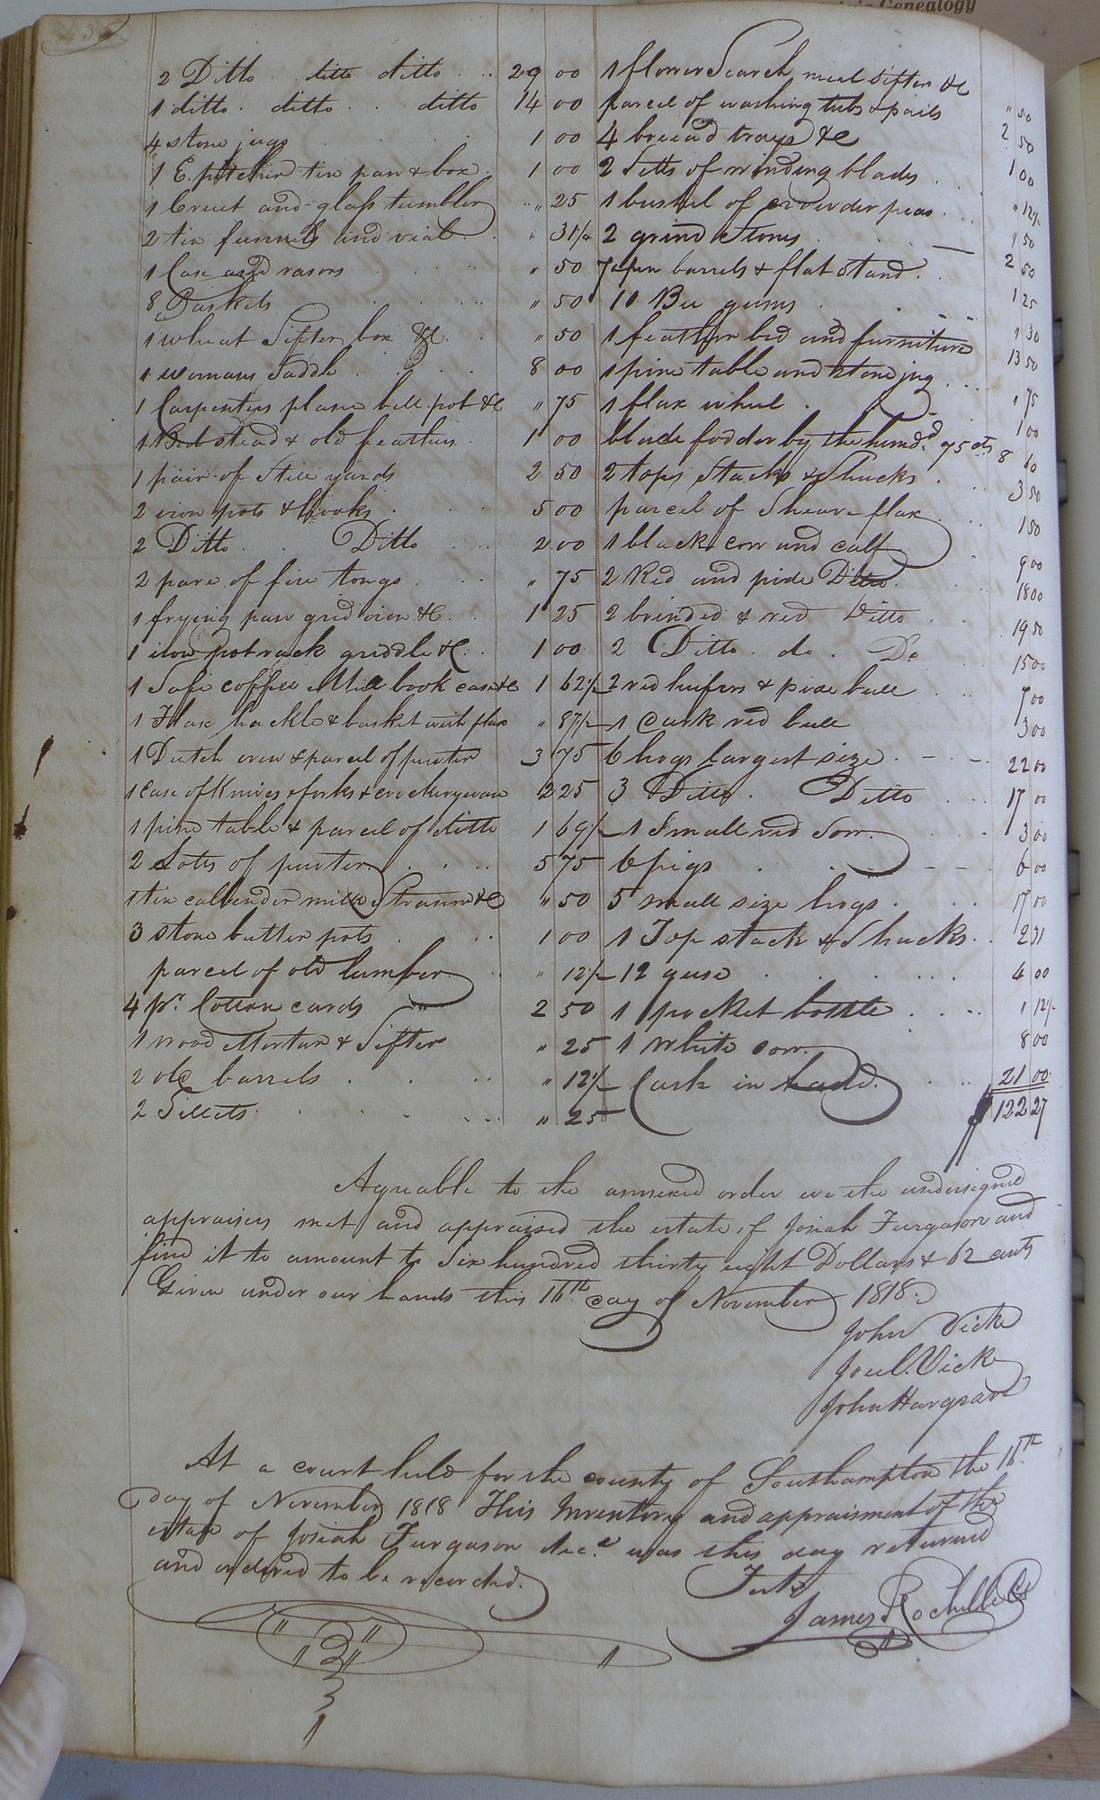 Genealogy
2 Ditto ditto ditto 29 00
1 ditto ditto ditto 14 00
4 stone jugs 1 00
1 E. pitcher tin pan & box 1 00
1 Cruet and glass tumbler " 25
2 tin funnels and vial " 31¼
1 Case and rasors " 50
8 Baskets " 50
1 wheat Sifter box &C " 50
1 womans Saddle 8 00
1 Carpenters plane bell pot &C " 75
1 Bed stead & old feathers 1 00
1 pair of Still yards 2 50
2 iron pots & hooks 5 00
2 Ditto Ditto 2 00
2 pare of fire tongs " 75
1 frying pan grid iron &C 1 25
1 iron pot rack griddle &C 1 00
1 Safe coffee Mill book case &c 1 62½
1 Flax hackle & basket with flax " 87½
1 Dutch oven & parcel of pewter 3 75
1 case of Knives & forks & crockeryware 2 25
1 pine table & parcel of ditto 1 69
2 Lotts of pewter 5 75
1 tin cullender milk Strainer &C " 50
3 stone butter pots 1 00
parcel of old lumber " 12½
4 pr. Cotton cards 2 50
1 wood Mortar & Sifter " 25
2 old barrels " 12½
2 " 25
1 flower Search meal Sifter &C " 50
parcel of washing tubs & pails 2 50
4 bread trays &C 1 00
2 Setts of winding blades " 12½
1 bushel of crowder peas 1 50
2 grind Stones 2 50
7 open barrels & flat Stand 1 25
10 Bee gums 1 30
1 feather bed and furniture 13 50
1 pine table and stone jug 1 75
1 flax wheel 1 00
blade fodder by the hundd. 75 cts 8 60
2 tops Stacks & Shucks 3 50
parcel of Sheave flax 1 50
1 black cow and calf 9 00
2 Red and pide Ditto 18 00
2 brinded & red Ditto 19 50
2 Ditto do. Do 15 00
2 red heifers & pide bull 7 00
1 dark red bull 3 00
6 hogs largest size 22 00
3 Ditto Ditto 17 00
1 Small red Sow 3 00
6 pigs 6 00
5 small size hogs 17 00
1 Top stack & Shucks 2 31
12 geese 4 00
1 pocket bottle 1 12½
1 White sow 8 00
Cash in hand 21 00
122 27
Agreable to the annexed order we the undersigned
appraisers met and appraised the estate of Josiah Furgason and
find it to amount to Six hundred thirty eight Dollars & 62 cents
Given under our hands this 16th day of November 1818.
John Vick
Joel Vick
John Hargrave
At a court held for the county of Southampton the 16th
day of November 1818 This Inventory and appraisment of the
estate of Josiah Furgason decd was this day returned
and ordered to be recorded.
Teste
James Rochelle Ck